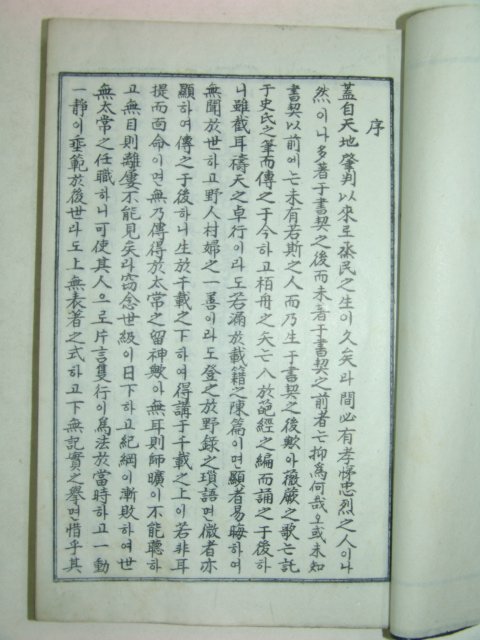 序
蓋自天地肇判以來로烝民之生이久矣라間必有孝悌忠烈之人이나
然이나多著于書契之後而未著于書契之前者는抑爲何哉오或未知
書契以前에는未有若斯之人而乃生于書契之後歟아薇蕨之歌는託
于史氏之筆而傳之于今하고栢舟之矢는入於葩經之編而誦之于後하
니雖截耳禱天之卓行이라도若漏於載籍之陳篇이면顯者易晦하여
無聞於世하고野人村婦之一善이라도登之於野錄之瑣語면微者亦
顯하여傳之于後하니生於千載之下하여得講于千載之上이若非耳
提而面命이면無乃傳得於太常之留神歟아無耳則師曠이不能聽하
고無目則離婁不能見矣라窃念世級이日下하고紀綱이漸敗하여世
無太常之任職하니可使其人으로片言隻行이爲法於當時하고一動
一靜이垂範於後世라도上無表著之式하고下無記實之擧면惜乎其